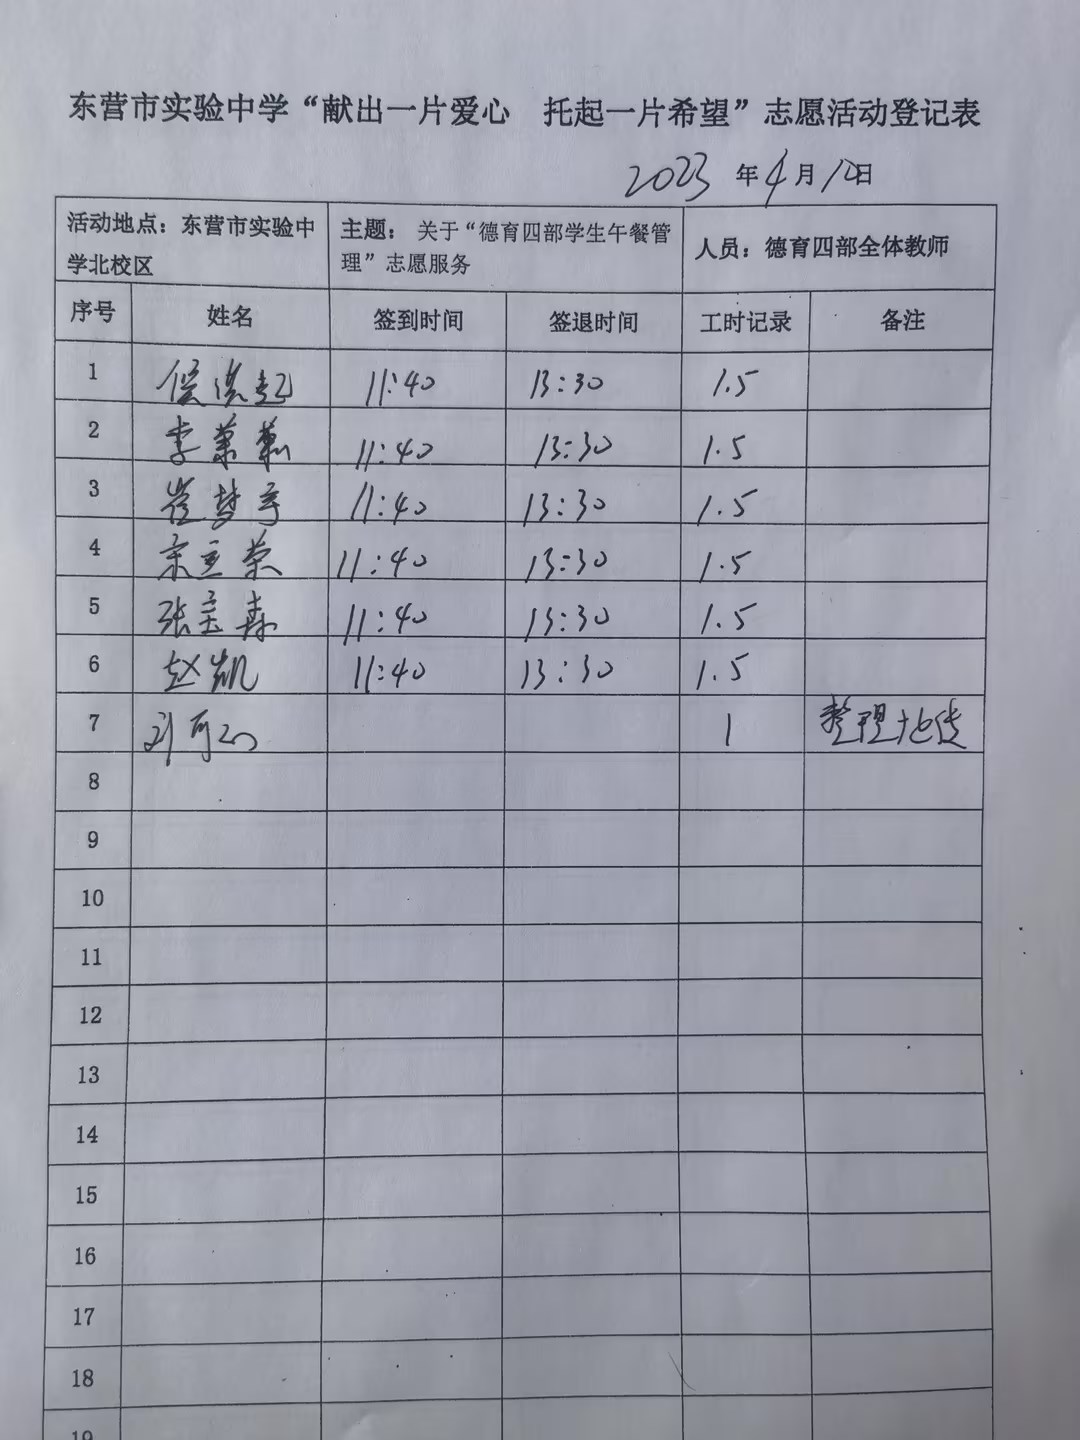 东营市实验中学“献出一片爱心 托起一片希望”志愿活动登记表
2023 年 4 月 12 日
活动地点：东营市实验中学北校区 主题： 关于“德育四部学生午餐管理”志愿服务 人员：德育四部全体教师
序号 姓名 签到时间 签退时间 工时记录 备注
1 侯洪起 11:40 13:30 1.5
2 李 11:40 13:30 1.5
3 崔梦宇 11:40 13:30 1.5
4 宋立荣 11:40 13:30 1.5
5 张宝森 11:40 13:30 1.5
6 赵凯 11:40 13:30 1.5
7 刘可心 1 整理上传
8
9
10
11
12
13
14
15
16
17
18
19